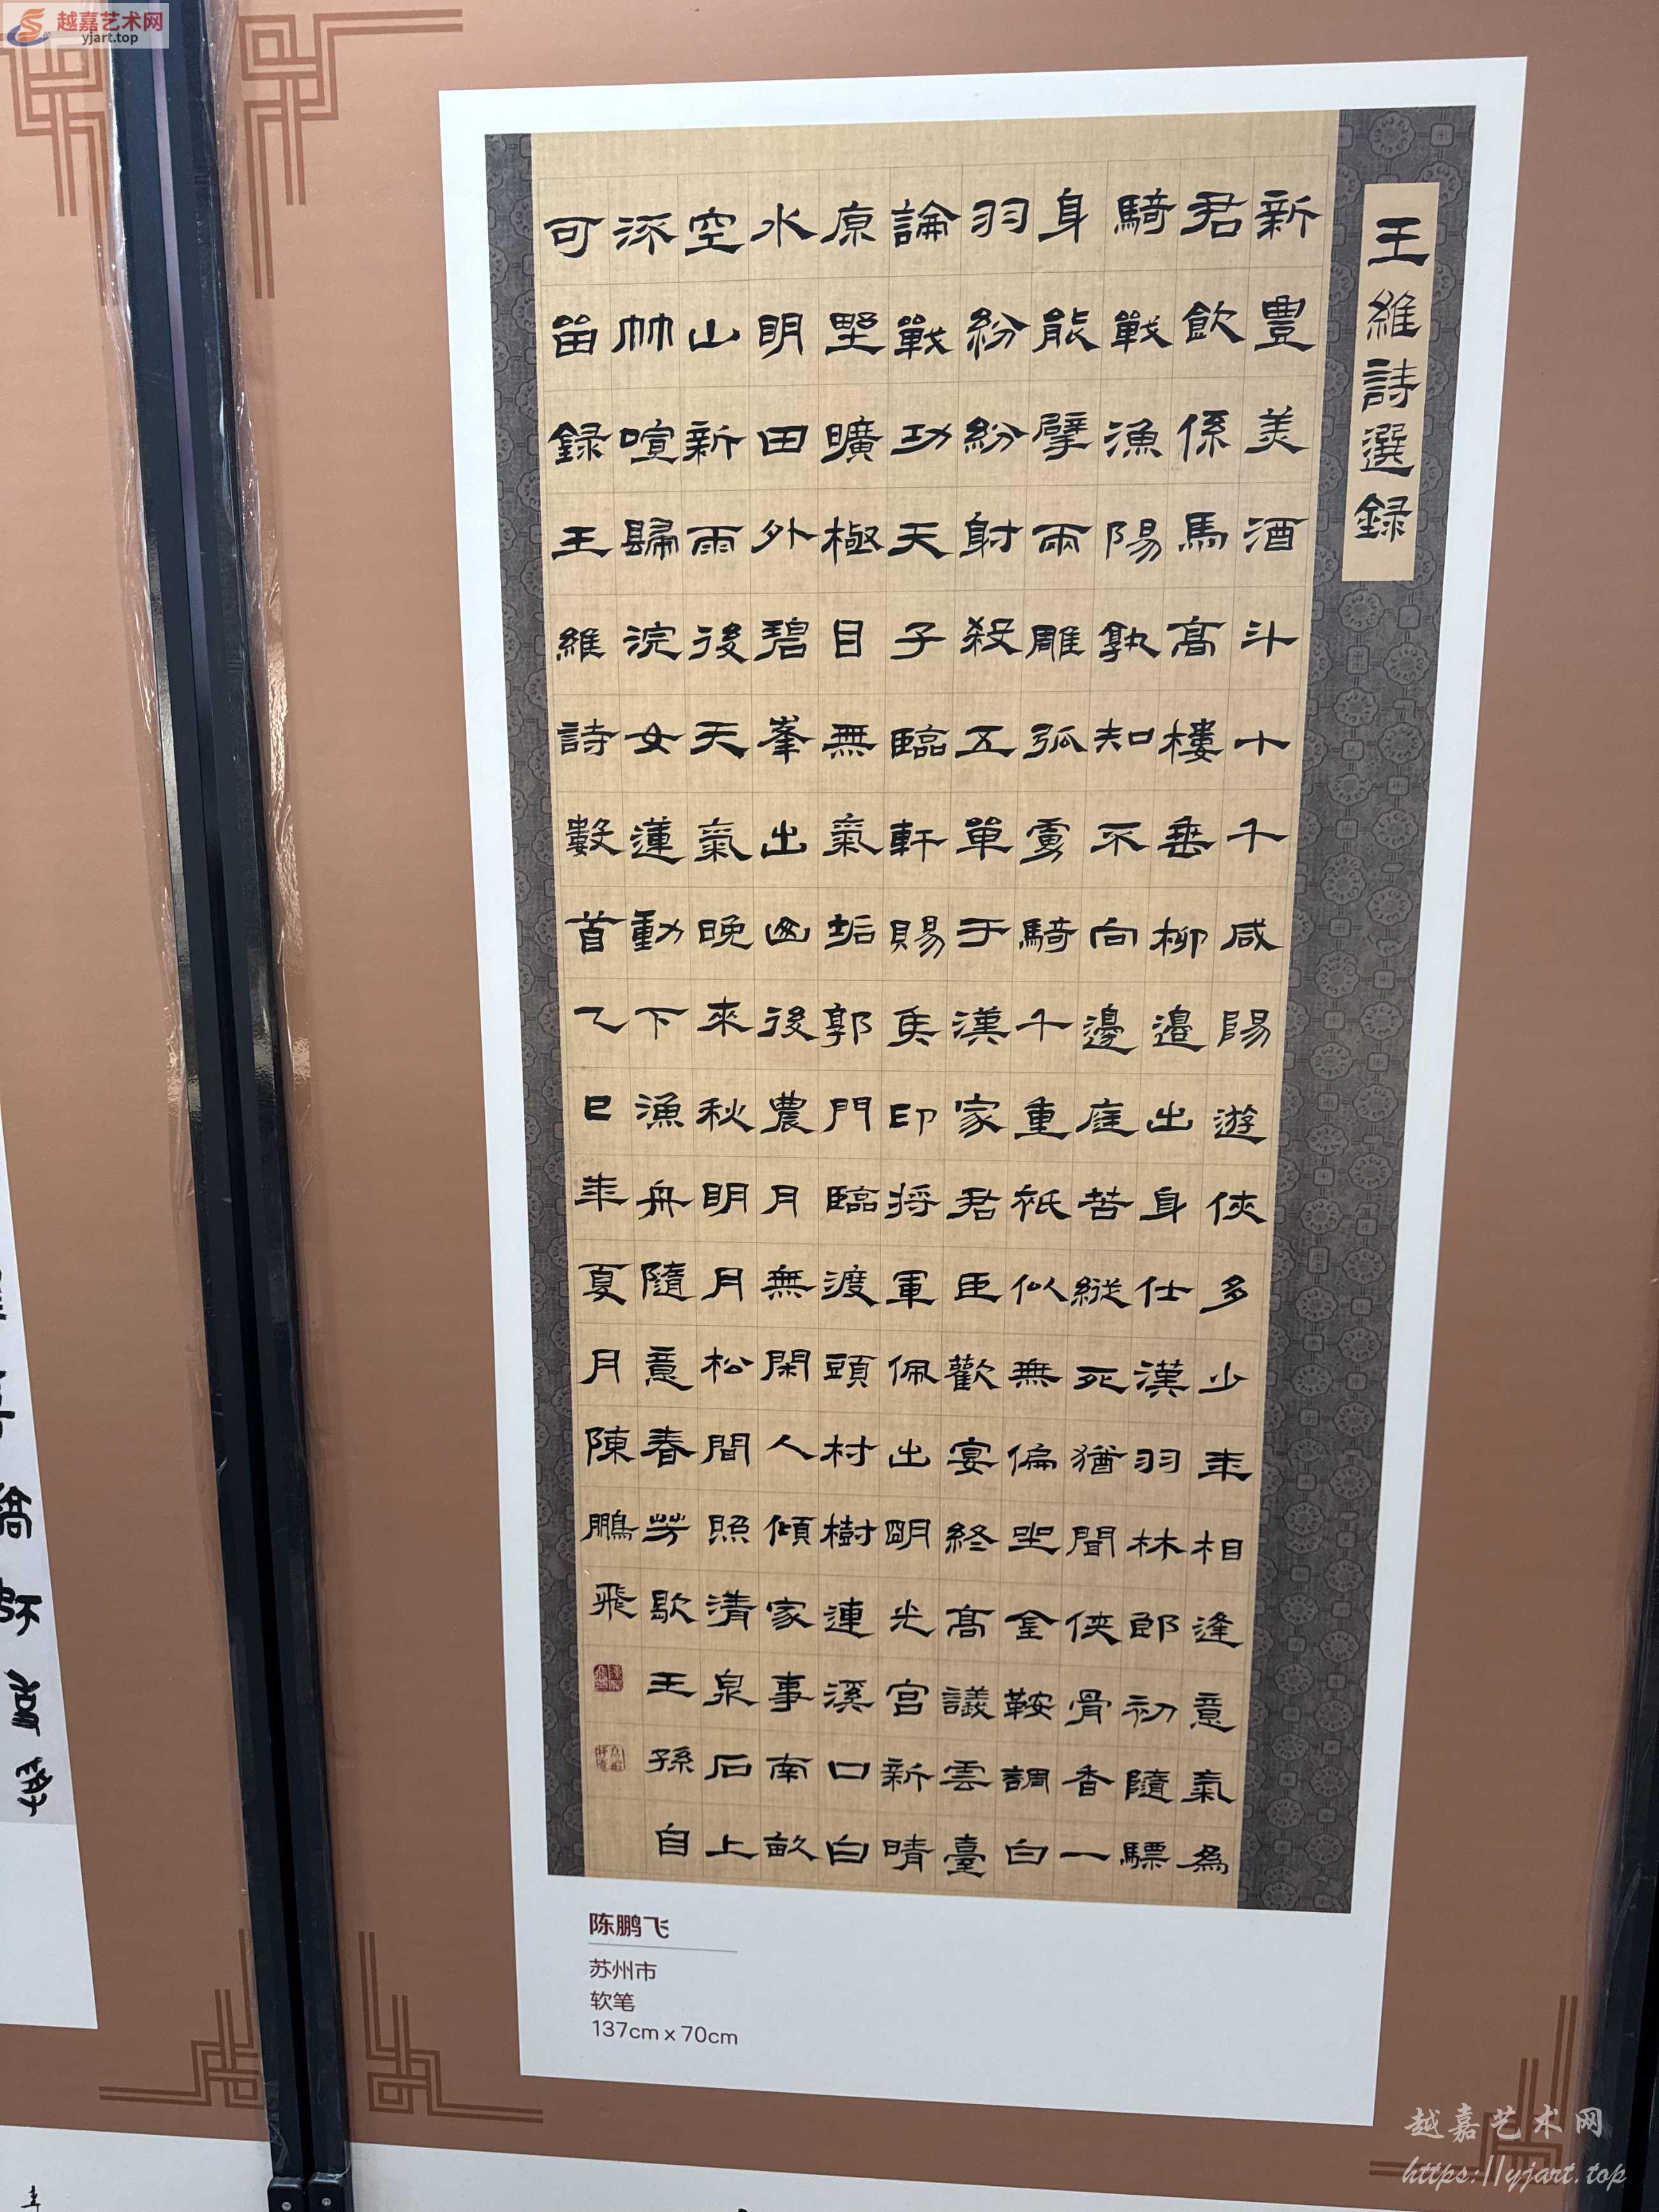 越嘉艺术网
yjart.top
王維詩選録
新豊美酒斗十千咸陽遊俠多少年相逢意氣為
君飲係馬高樓垂柳邊出身仕漢羽林郎初隨驃
騎戰漁陽孰知不向邊庭苦縱死猶聞俠骨香一
身能擘兩雕弧虜騎千重祇似無偏坐金鞍調白
羽紛紛射殺五單于漢家君臣歡宴終高議雲臺
論戰功天子臨軒賜侯印將軍佩出明光宮新晴
原野曠極目無氣垢郭門臨渡頭村樹連溪口白
水明田外碧峯出山後農月無閑人傾家事南畝
空山新雨後天氣晚來秋明月松間照清泉石上
流竹喧歸浣女蓮動下漁舟隨意春芳歇王孫自
可留録王維詩數首乙巳年夏月陳鵬飛
陈鹏飞
苏州市
软笔
137cm x 70cm
越嘉艺术网
https://yjart.top